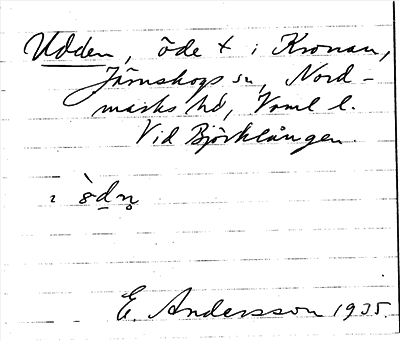 Udden, öde t i Kronan,
Järnskogs sn, Nord-
marks hd, Vrml l.
Vid Björklången.
E. Andersson 1935.